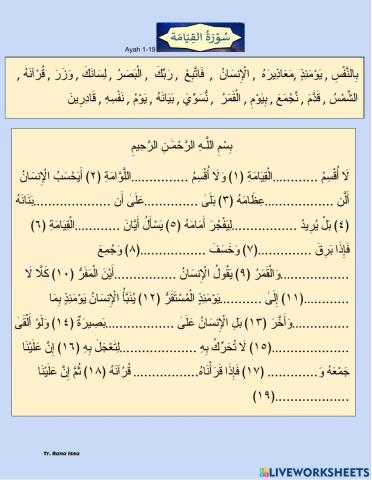 سُوْرَةُ القِيَامَة
Ayah 1-19
بِالنَّفْسِ , يَوْمَئِذٍ , مَعَاذِيرَهُ , الْإِنسَانُ , فَاتَّبِعْ , رَبِّكَ , الْبَصَرُ , لِسَانَكَ , وَزَرَ , قُرْآنَهُ ,
الشَّمْسُ , قَدَّمَ , نَّجْمَعَ , بِيَوْمِ , الْقَمَرُ , نُسَوِّيَ , بَيَانَهُ , يَوْمُ , نَفْسِهِ , قَادِرِينَ
بِسْمِ اللَّـهِ الرَّحْمَـٰنِ الرَّحِيمِ
لَا أُقْسِمُ ............الْقِيَامَةِ (١) وَلَا أُقْسِمُ ...............اللَّوَّامَةِ (٢) أَيَحْسَبُ الْإِنسَانُ
أَلَّن ..................عِظَامَهُ (٣) بَلَىٰ ..............عَلَىٰ أَن ....................بَنَانَهُ
(٤) بَلْ يُرِيدُ ..................لِيَفْجُرَ أَمَامَهُ (٥) يَسْأَلُ أَيَّانَ ............الْقِيَامَةِ (٦)
فَإِذَا بَرِقَ ................(٧) وَخَسَفَ ..................(٨) وَجُمِعَ
.................وَالْقَمَرُ (٩) يَقُولُ الْإِنسَانُ ................أَيْنَ الْمَفَرُّ (١٠) كَلَّا لَا
...............(١١) إِلَىٰ ...............يَوْمَئِذٍ الْمُسْتَقَرُّ (١٢) يُنَبَّأُ الْإِنسَانُ يَوْمَئِذٍ بِمَا
................وَأَخَّرَ (١٣) بَلِ الْإِنسَانُ عَلَىٰ ................بَصِيرَةٌ (١٤) وَلَوْ أَلْقَىٰ
..................(١٥) لَا تُحَرِّكْ بِهِ ....................لِتَعْجَلَ بِهِ (١٦) إِنَّ عَلَيْنَا
جَمْعَهُ وَ.............. (١٧) فَإِذَا قَرَأْنَاهُ.................. قُرْآنَهُ (١٨) ثُمَّ إِنَّ عَلَيْنَا
...................(١٩)
Tr. Rana Issa
LIVEWORKSHEETS